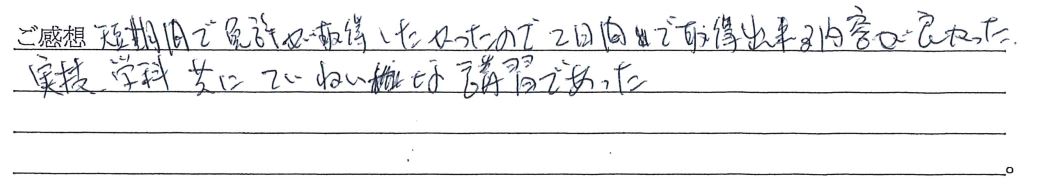 ご感想 短期間で免許が取得したかったので2日間で取得出来る内容が良かった.
実技、学科 共に ていねいな講習であった
。